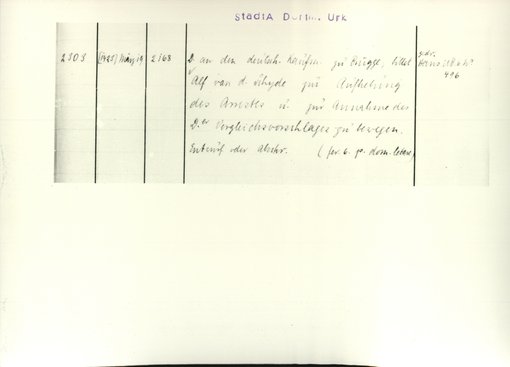 StadtA Dortm. Urk
2505 (1425) März 19 2168 D. an den deutsch. Kaufm. zu Brügge, bittet
Alf van d. Schyde zur Aufhebung
des Arrestes u. zur Annahme des
D.er Vergleichsvorschlages zu bewegen.
Entwurf oder Abschr. (fer. 6. p. dom. letare)
gedr.
Hans. UB 6 N°
496